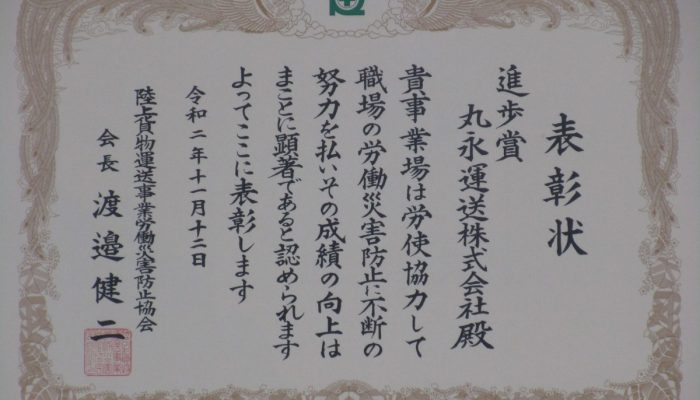 表彰状
進歩賞
丸永運送株式会社殿
貴事業場は労使協力して
職場の労働災害防止に不断の
努力を払いその成績の向上は
まことに顕著であると認められます
よってここに表彰します
令和二年十一月十二日
陸上貨物運送事業労働災害防止協会
会長 渡邉健二